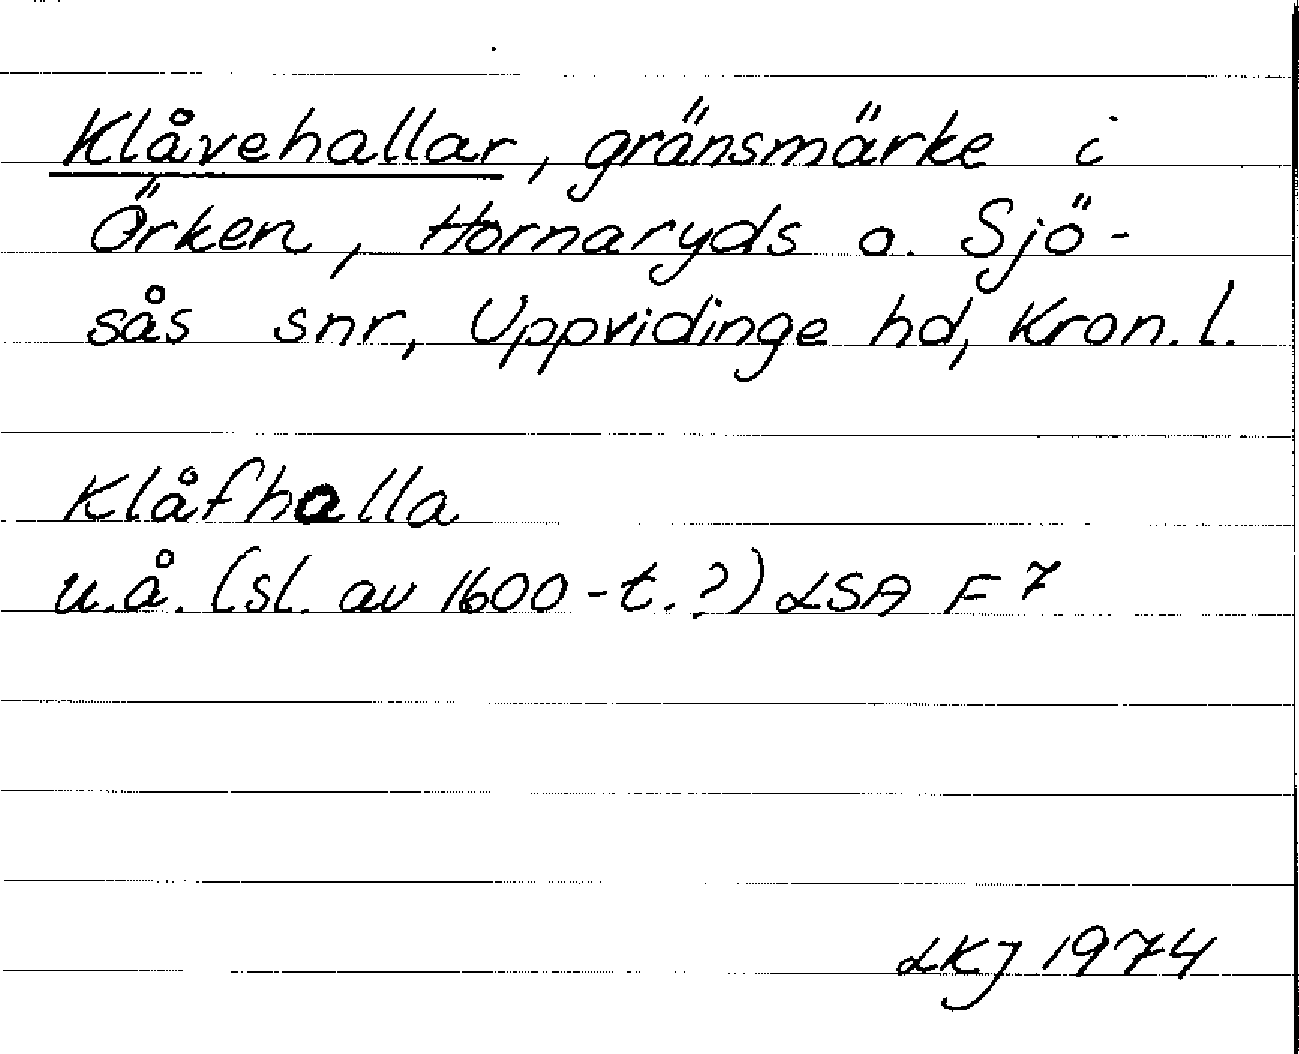 Klåvehallar, gränsmärke i
Örken, Hornaryds o. Sjö-
sås snr, Uppvidinge hd, Kron. l.
Klåfhalla
u.å. (sl. av 1600-t.?) LSA F 7
LKJ 1974